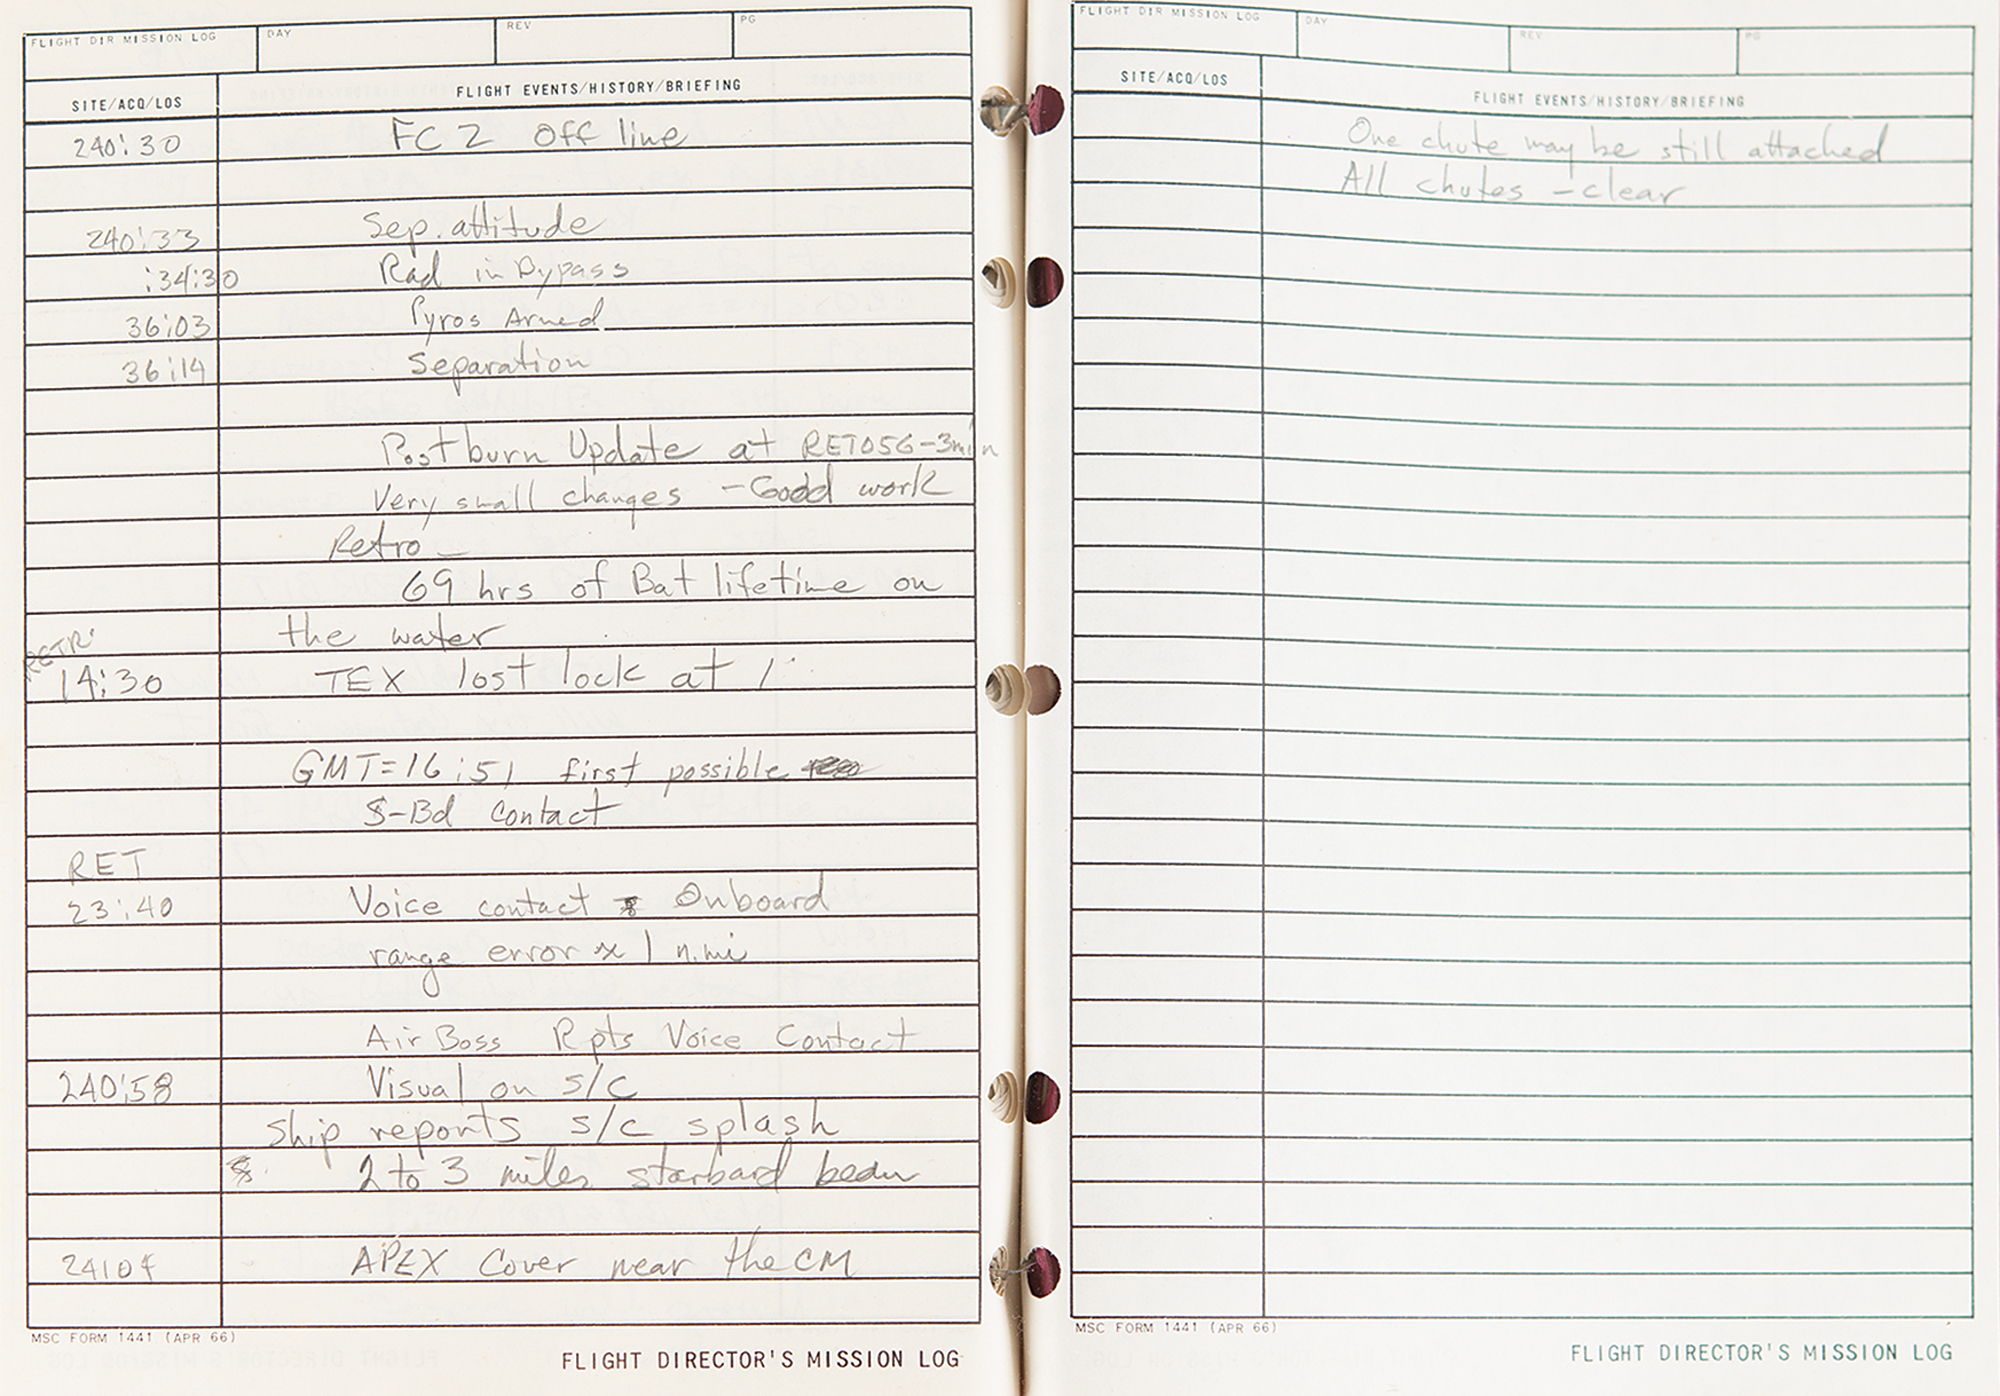 FLIGHT DIR MISSION LOG DAY REV PG
SITE/ACQ/LOS FLIGHT EVENTS/HISTORY/BRIEFING
240:30 FC 2 Off line
240:33 Sep. attitude
:34:30 Rad in Bypass
36:03 Pyros Armed
36:14 Separation
Post burn Update at RET056-3min
Very small changes - Good work
Retro -
69 hrs of Bat lifetime on
the water
RETR:
14:30 TEX lost lock at 1:
GMT=16:51 first possible
S-Bd Contact
RET
23:40 Voice contact Onboard
range error ≈ 1 n.mi
Air Boss Rpts Voice Contact
240:58 Visual on S/C
Ship reports S/C splash
2 to 3 miles starbard beam
24104 APEX Cover near the CM
MSC FORM 1441 (APR 66)
FLIGHT DIRECTOR'S MISSION LOG
FLIGHT DIR MISSION LOG DAY REV PG
SITE/ACQ/LOS FLIGHT EVENTS/HISTORY/BRIEFING
One chute may be still attached
All chutes - clear
MSC FORM 1441 (APR 66)
FLIGHT DIRECTOR'S MISSION LOG